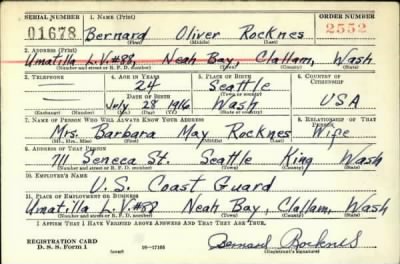 SERIAL NUMBER 1. NAME (Print) ORDER NUMBER
01678 Bernard Oliver Rocknes 2552
(First) (Middle) (Last)
2. ADDRESS (Print)
Umatilla L.V.#88, Neah Bay, Clallam, Wash
(Number and street or R. F. D. number) (Town) (County) (State)
3. TELEPHONE 4. AGE IN YEARS 5. PLACE OF BIRTH 6. COUNTRY OF CITIZENSHIP
24 Seattle
DATE OF BIRTH (Town or county)
July 28 1916 Wash USA
(Exchange) (Number) (Mo.) (Day) (Yr.) (State or country)
7. NAME OF PERSON WHO WILL ALWAYS KNOW YOUR ADDRESS 8. RELATIONSHIP OF THAT PERSON
Mrs. Barbara May Rocknes Wife
(Mr., Mrs., Miss) (First) (Middle) (Last)
9. ADDRESS OF THAT PERSON
711 Seneca St. Seattle King Wash
(Number and street or R. F. D. number) (Town) (County) (State)
10. EMPLOYER'S NAME
U.S. Coast Guard
11. PLACE OF EMPLOYMENT OR BUSINESS
Umatilla L.V.#88 Neah Bay, Clallam, Wash
(Number and street or R. F. D. number) (Town) (County) (State)
I AFFIRM THAT I HAVE VERIFIED ABOVE ANSWERS AND THAT THEY ARE TRUE.
REGISTRATION CARD
D. S. S. Form 1 (over) 16—17105 Bernard Rocknes
(Registrant's signature)